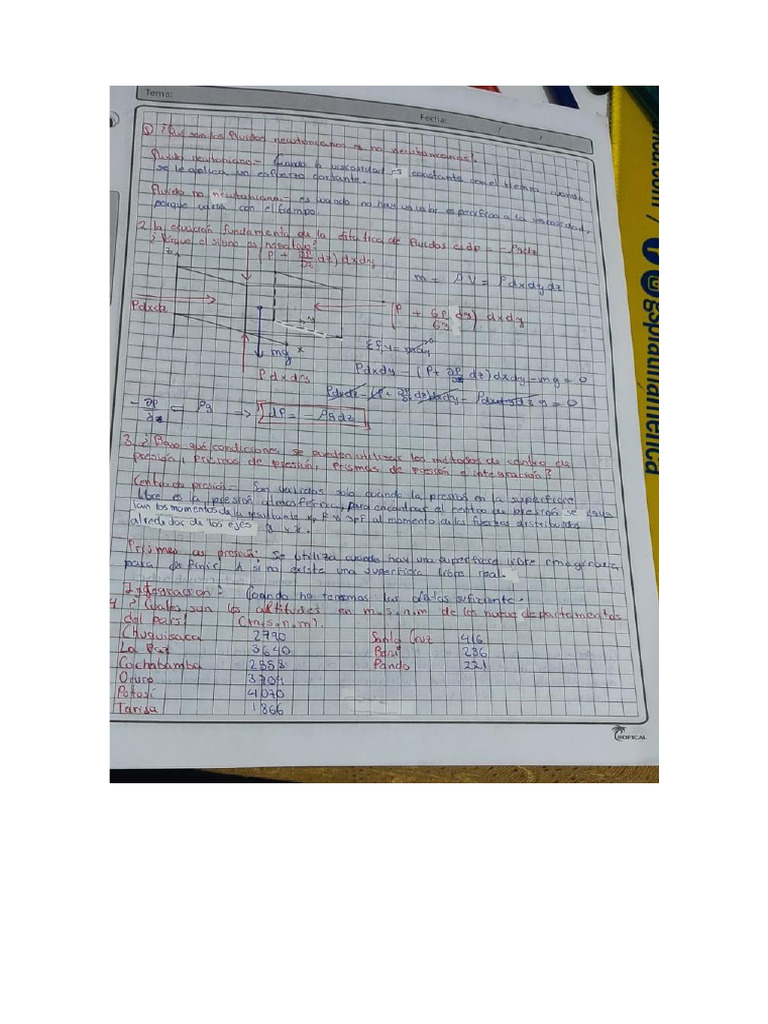 Tema:
Fecha: / /
① ¿Qué son los fluidos newtonianos y no newtonianos?
Fluido newtoniano = Cuando la viscosidad es constante con el tiempo cuando
se le aplica un esfuerzo cortante.
Fluido no newtoniano = es cuando no hay un valor específico a la viscosidad,
porque varia con el tiempo.
2 La ecuación fundamental de la estática de fluidos es dp = - ρgdz
¿Porque el signo es negativo?
(P + ∂P/∂z dz) dxdy
z
m = ρV = ρdxdydz
Pdxdz
(P + δP/δy dy) dxdy
mg
x
Pdxdy
ΣFy = 
Pdxdy - (P + ∂P/∂z dz) dxdy - mg = 0
- ∂P/∂z = ρg → dP = - ρgdz
3. ¿Bajo qué condiciones se pueden utilizar los métodos de centro de
presión, prismas de presión, prismas de presión e integración?
Centro de presión = Son validas solo cuando la presión en la superficie
libre es la presión atmosférica, para encontrar el centro de presión se
los momentos de la resultante xp F y yp F al momento de las fuerzas distribuidas
alrededor de los ejes y x.
Prismas de presión: Se utiliza cuando hay una superficie libre imaginaria
para definir h si no existe una superficie libre real.
Integración: Cuando no tenemos los datos suficiente.
4 ¿Cuales son las altitudes en m.s.n.m de los nueve departamentos
del país? (m.s.n.m).
Chuquisaca 2790 Santa Cruz 416
La Paz 3640 Beni 236
Cochabamba 2558 Pando 221
Oruro 3709
Potosí 4070
Tarija 1866
TROPICAL
Esplanamerica